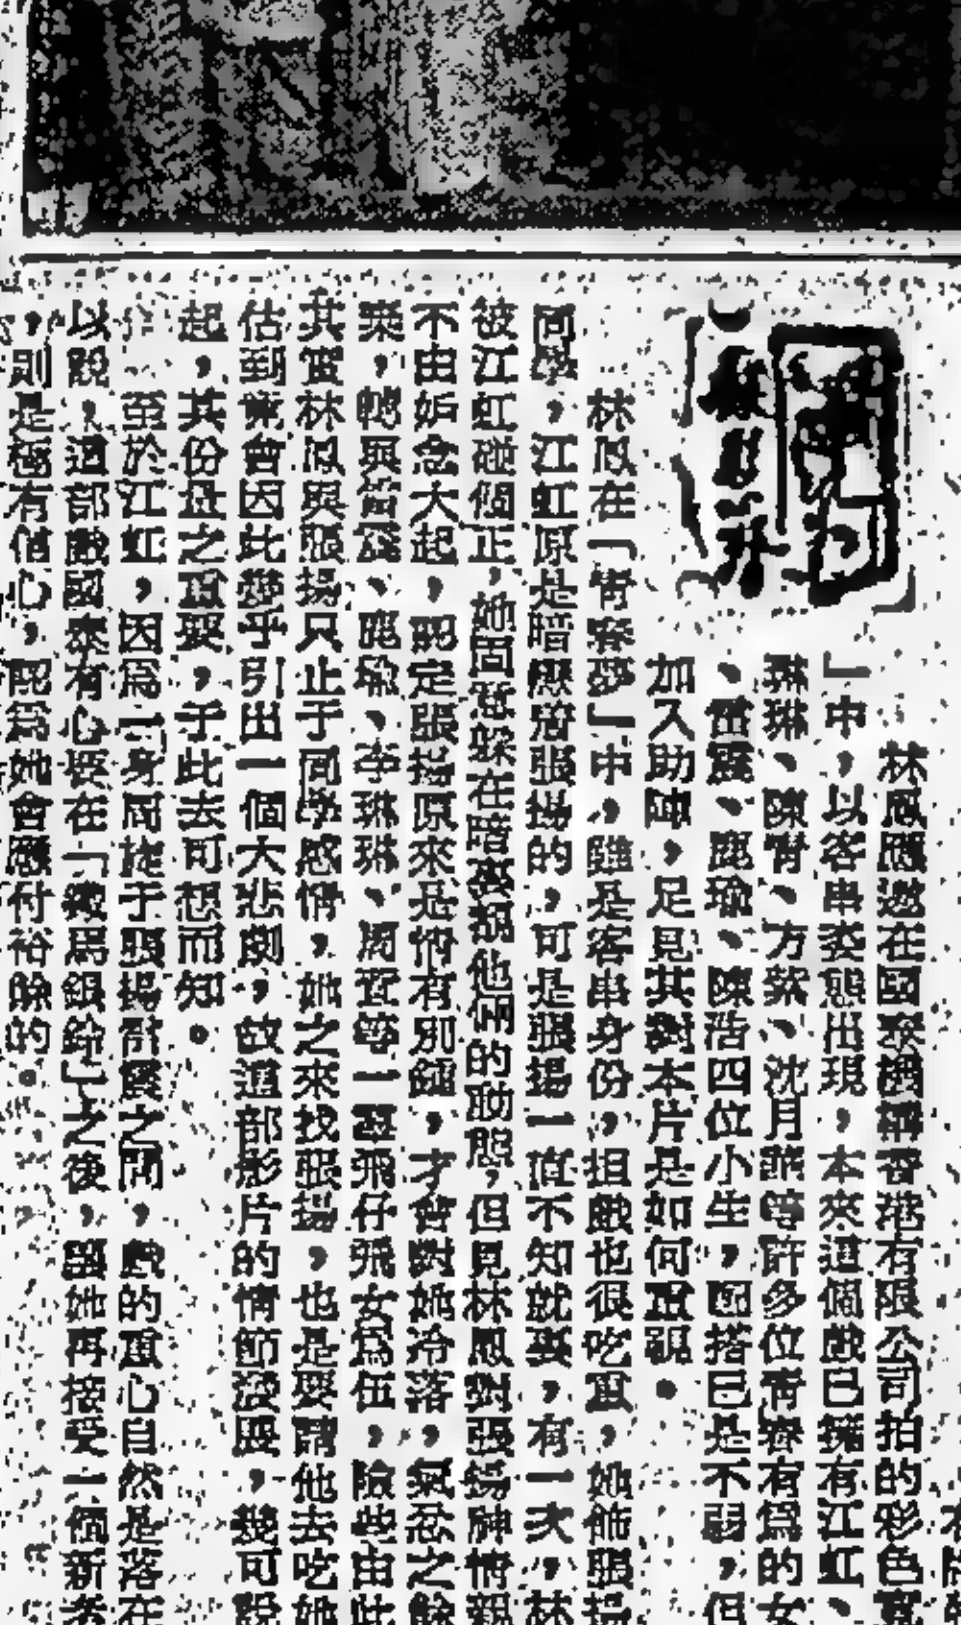 林鳳應邀在國泰機構香港有限公司拍的彩色寬
」中，以客串姿態出現，本來這個戲已擁有江虹、
琳琳、陳青、方紫、沈月華等許多位青春有為的女
、雷震、鹿瑜、陳浩四位小生，圈搭已是不弱，但
加入助陣，足見其對本片是如何重視。
林鳳在「青春夢」中，雖是客串身份，担戲也很吃重，她飾張揚
同學，江虹原是暗戀着張揚的，可是張揚一直不知就裏，有一次，林
被江虹碰個正，她固意躲在暗裏覷他倆的動態，但見林鳳對張揚神情親
不由妒念大起，認定張揚原來是情有別鍾，才會對她冷落，氣忿之餘
棄，轉與雷震、鹿瑜、李琳琳、周萱等一羣飛仔飛女為伍，險些由此
其實林鳳與張揚只止于同學感情，她之來找張揚，也是要請他去吃她
估到竟會因此幾乎引出一個大悲劇，故這部影片的情節發展，幾可說
起，其份量之重要，于此去可想而知。
至於江虹，因為一身周旋于張揚雷震之間，戲的重心自然是落在
以說，這部戲國泰有心要在「鐵馬銀鈴」之後，讓她再接受一個新考
，則是極有信心，認為她會應付裕餘的。